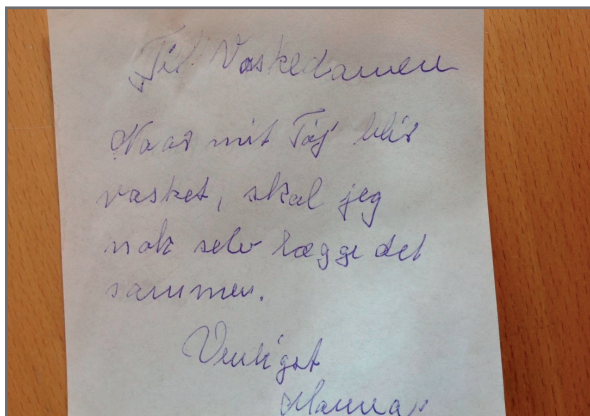 Til Vaskedamen
Naar mit Tøj blir
vasket, skal jeg
nok selv lægge det
sammen.
Venligst